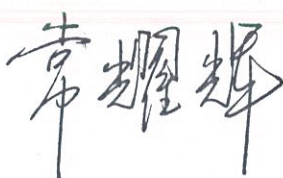 常耀辉